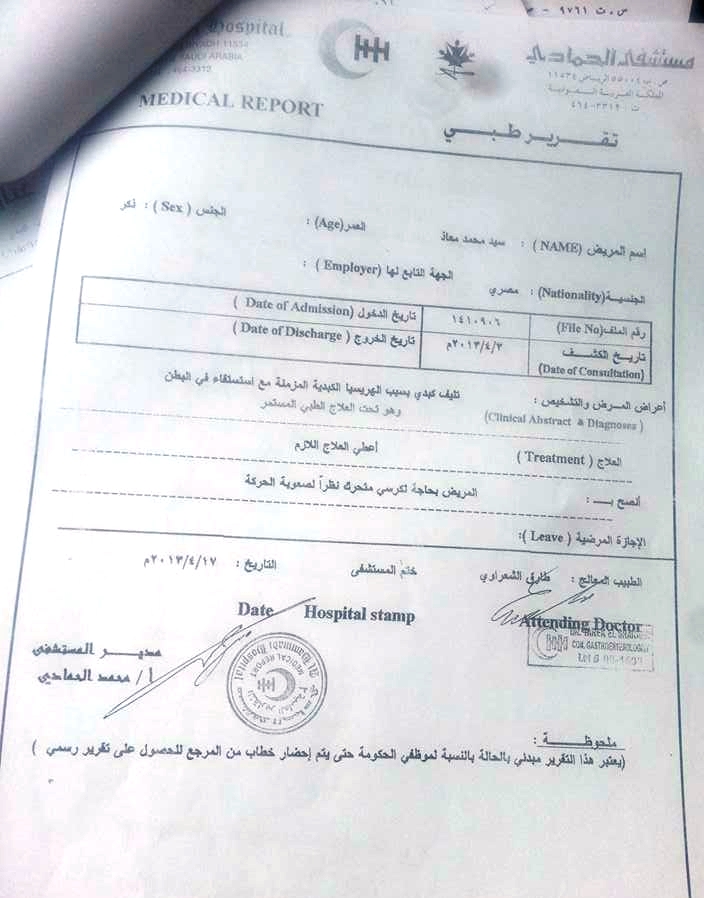 ص.ت ٩٧٦١
Hospital
RIYADH 11534
SAUDI ARABIA
464-3312
مستشفى الحمادي
ص.ب ٥٥٠٠٤ الرياض ١١٥٣٤
المملكة العربية السعودية
ت : ٤٦٤-٣٣١٢
MEDICAL REPORT
تقرير طبي
اسم المريض (NAME) : سيد محمد معاذ العمر(Age) : الجنس ( Sex) : ذكر
الجنسية(Nationality) : مصري الجهة التابع لها (Employer) :
رقم الملف(File No) ١٤١٠٩٠٦ تاريخ الدخول (Date of Admission )
تاريخ الكشف ٢٠١٣/٤/٣م تاريخ الخروج ( Date of Discharge )
(Date of Consultation)
أعراض المرض والتشخيص : تليف كبدي بسبب الهريسيا الكبدية المزمنة مع استسقاء في البطن
(Clinical Abstract & Diagnoses ) وهو تحت العلاج الطبي المستمر
العلاج ( Treatment ) أعطي العلاج اللازم
أنصح بـــ : المريض بحاجة لكرسي متحرك نظراً لصعوبة الحركة
الإجازة المرضية ( Leave ):
الطبيب المعالج : طارق الشعراوي ختم المستشفى التاريخ : ٢٠١٣/٤/١٧م
Date Hospital stamp Attending Doctor
DR. TAREK EL SHARAWY
CON. GASTROENTEROLOGY
مدير المستشفى
أ / محمد الحمادي
Al Hammadi Hospital
MEDICAL REPORT
ملحوظة :
(يعتبر هذا التقرير مبدئي بالحالة بالنسبة لموظفي الحكومة حتى يتم إحضار خطاب من المرجع للحصول على تقرير رسمي )